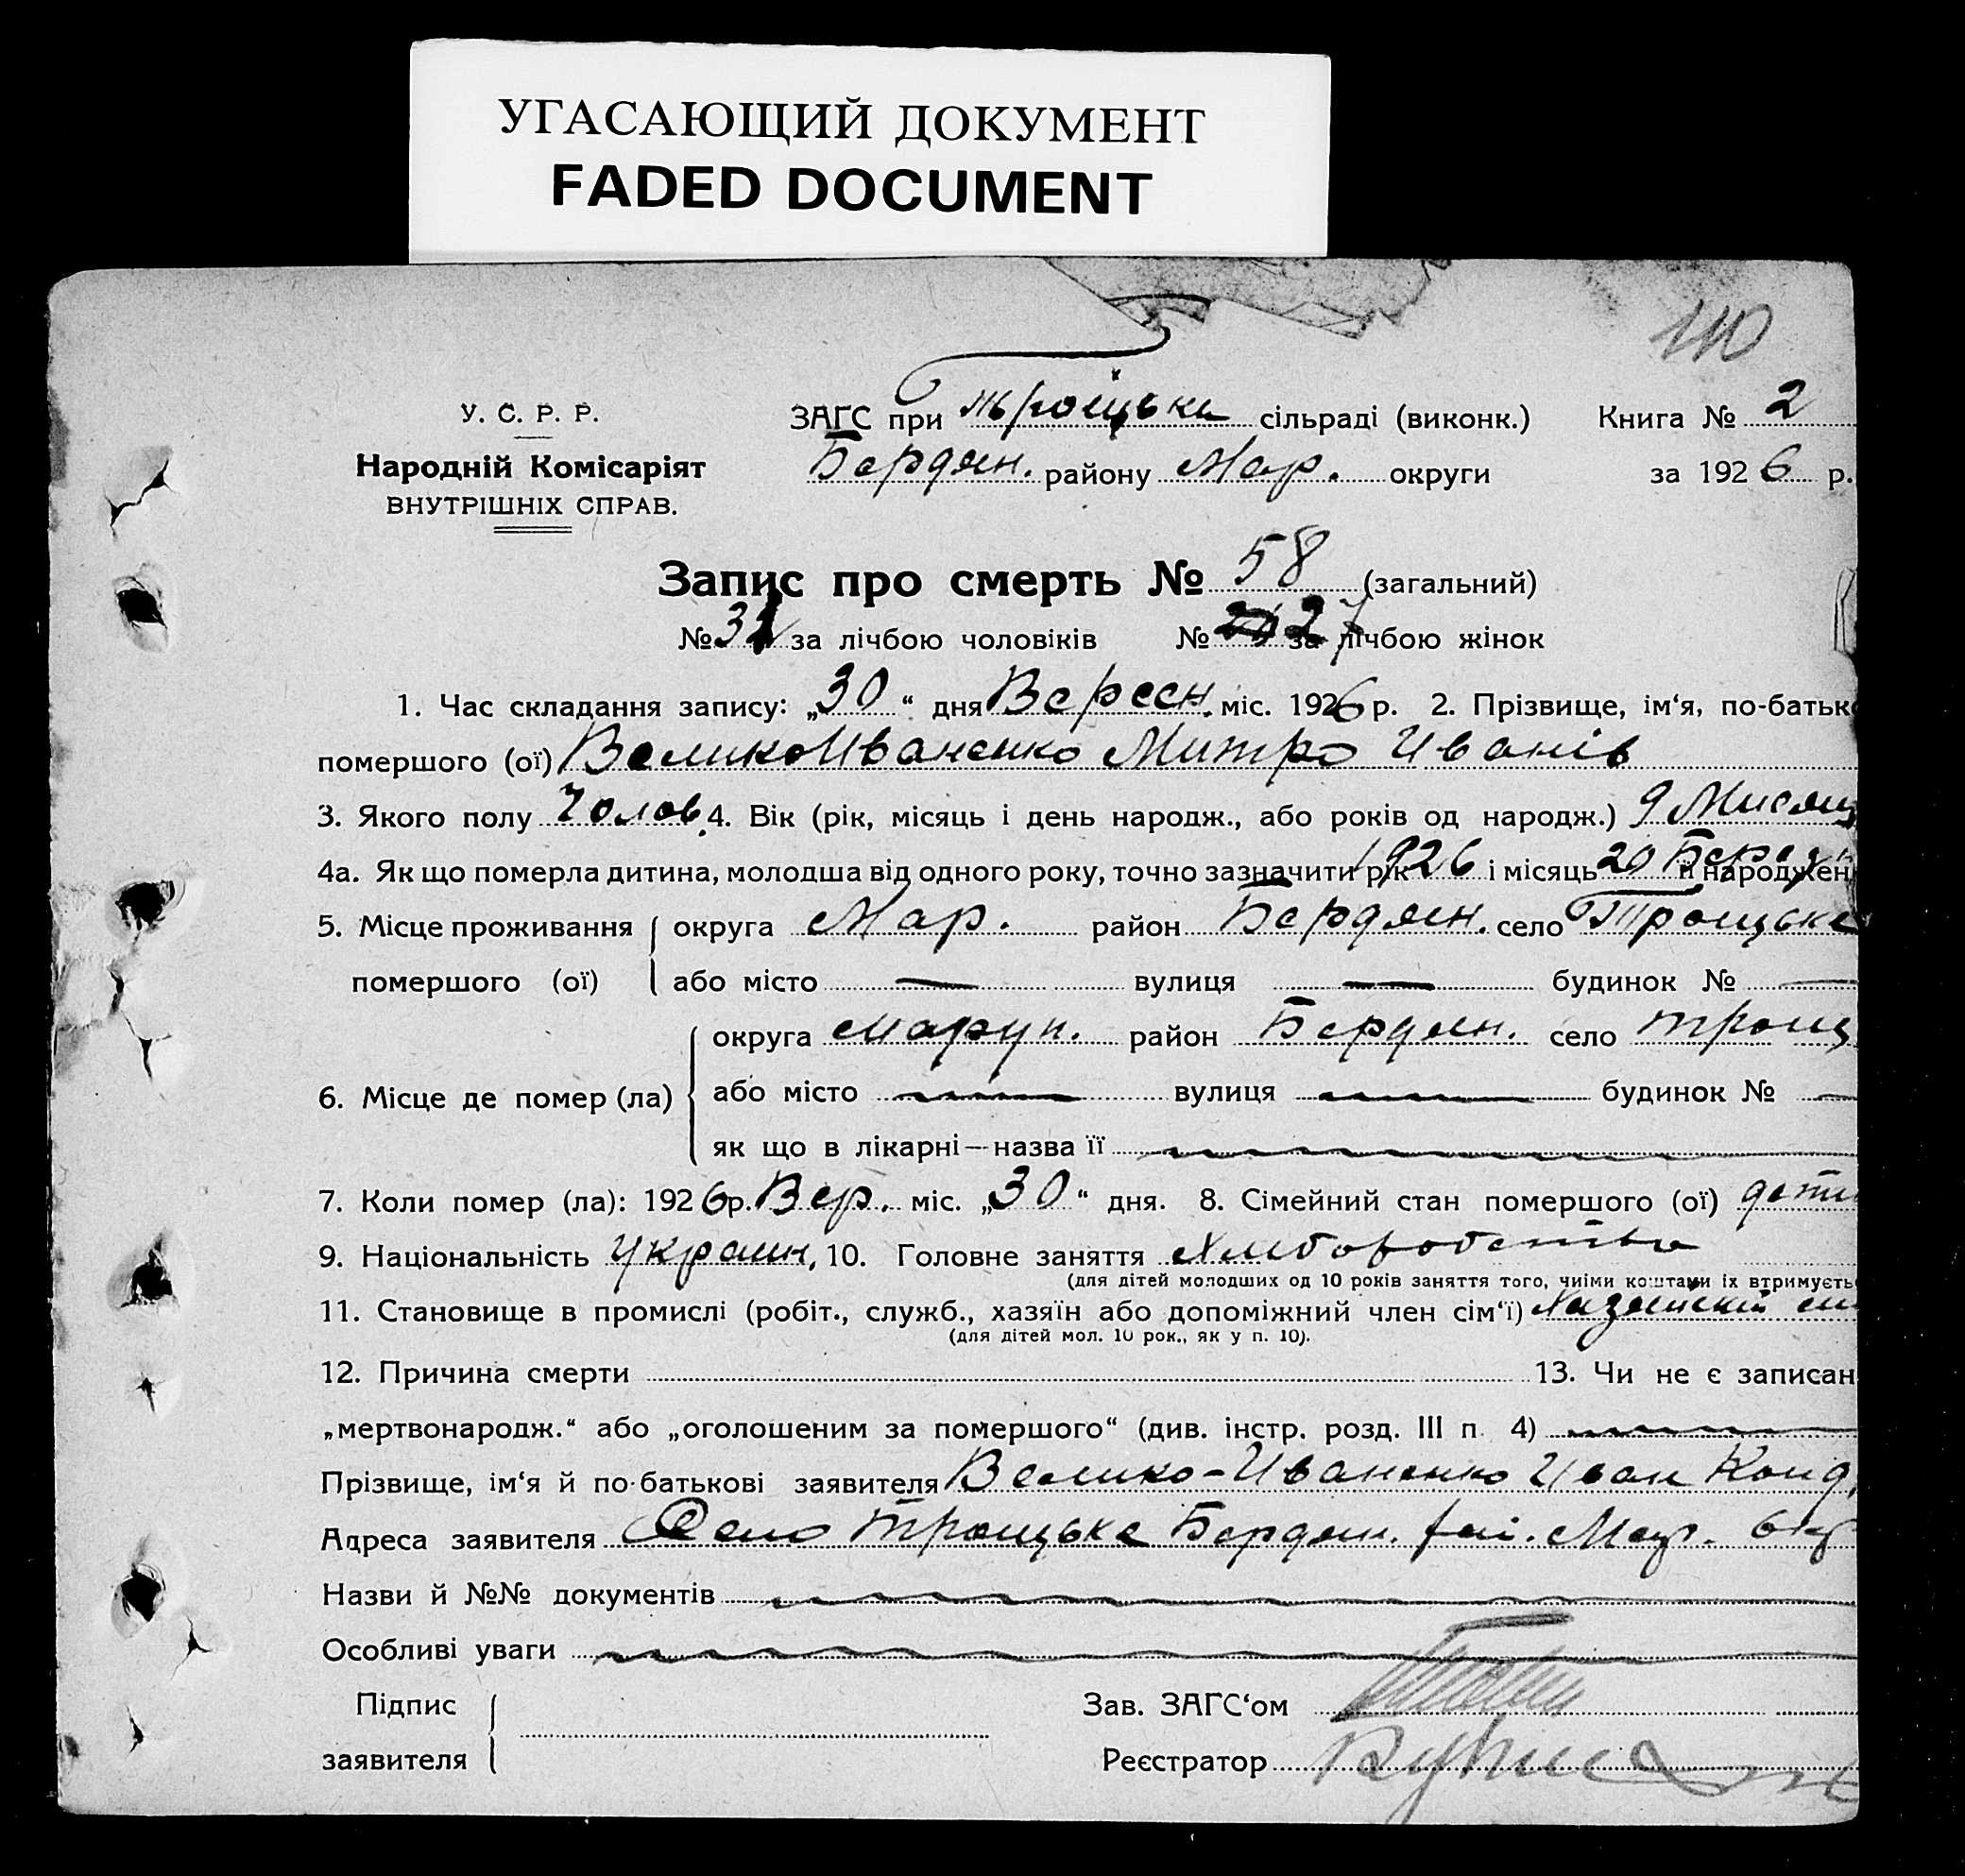 УГАСАЮЩИЙ ДОКУМЕНТ
FADED DOCUMENT
110
У. С. Р. Р.
Народній Комісаріят
ВНУТРІШНІХ СПРАВ.
ЗАГС при Троїцьке сільраді (виконк.) Книга № 2
Бердян. району Мар. округи за 1926 р.
Запис про смерть № 58 (загальний)
№ 31 за лічбою чоловіків № 27 за лічбою жінок
1. Час складання запису: „30“ дня Вересн. міс. 1926 р. 2. Прізвище, ім‘я, по-батьк
помершого (ої) ВеликоИваненко Митро Иванів
3. Якого полу Чолов. 4. Вік (рік, місяць і день народж., або років од народж.) 9 Мисяц
4а. Як що померла дитина, молодша від одного року, точно зазначити рік 1926 і місяць 20 її народжен
5. Місце проживання округа Мар. район Бердян. село Троицьке
помершого (ої) або місто — вулиця — будинок № —
6. Місце де помер (ла) округа Мариуп. район Бердян. село Троиц
або місто вулиця будинок №
як що в лікарні—назва її
7. Коли помер (ла): 1926 р. Вер. міс. „30“ дня. 8. Сімейний стан помершого (ої) дети
9. Національність Украин, 10. Головне заняття Хлиборобство
(для дітей молодших од 10 років заняття того, чиїми коштами їх втримуєть
11. Становище в промислі (робіт., служб., хазяїн або допоміжний член сім‘ї) Хазяйский
(для дітей мол. 10 рок., як у п. 10).
12. Причина смерти 13. Чи не є записан
„мертвонародж.“ або „оголошеним за помершого“ (див. інстр. розд. III п. 4)
Прізвище, ім‘я й по-батькові заявителя Велико-Иваненко Иван Конд.
Адреса заявителя Село Троицьке Бердян. рай. Мар. окр
Назви й №№ документів
Особливі уваги
Підпис
заявителя
Зав. ЗАГС‘ом
Реєстратор